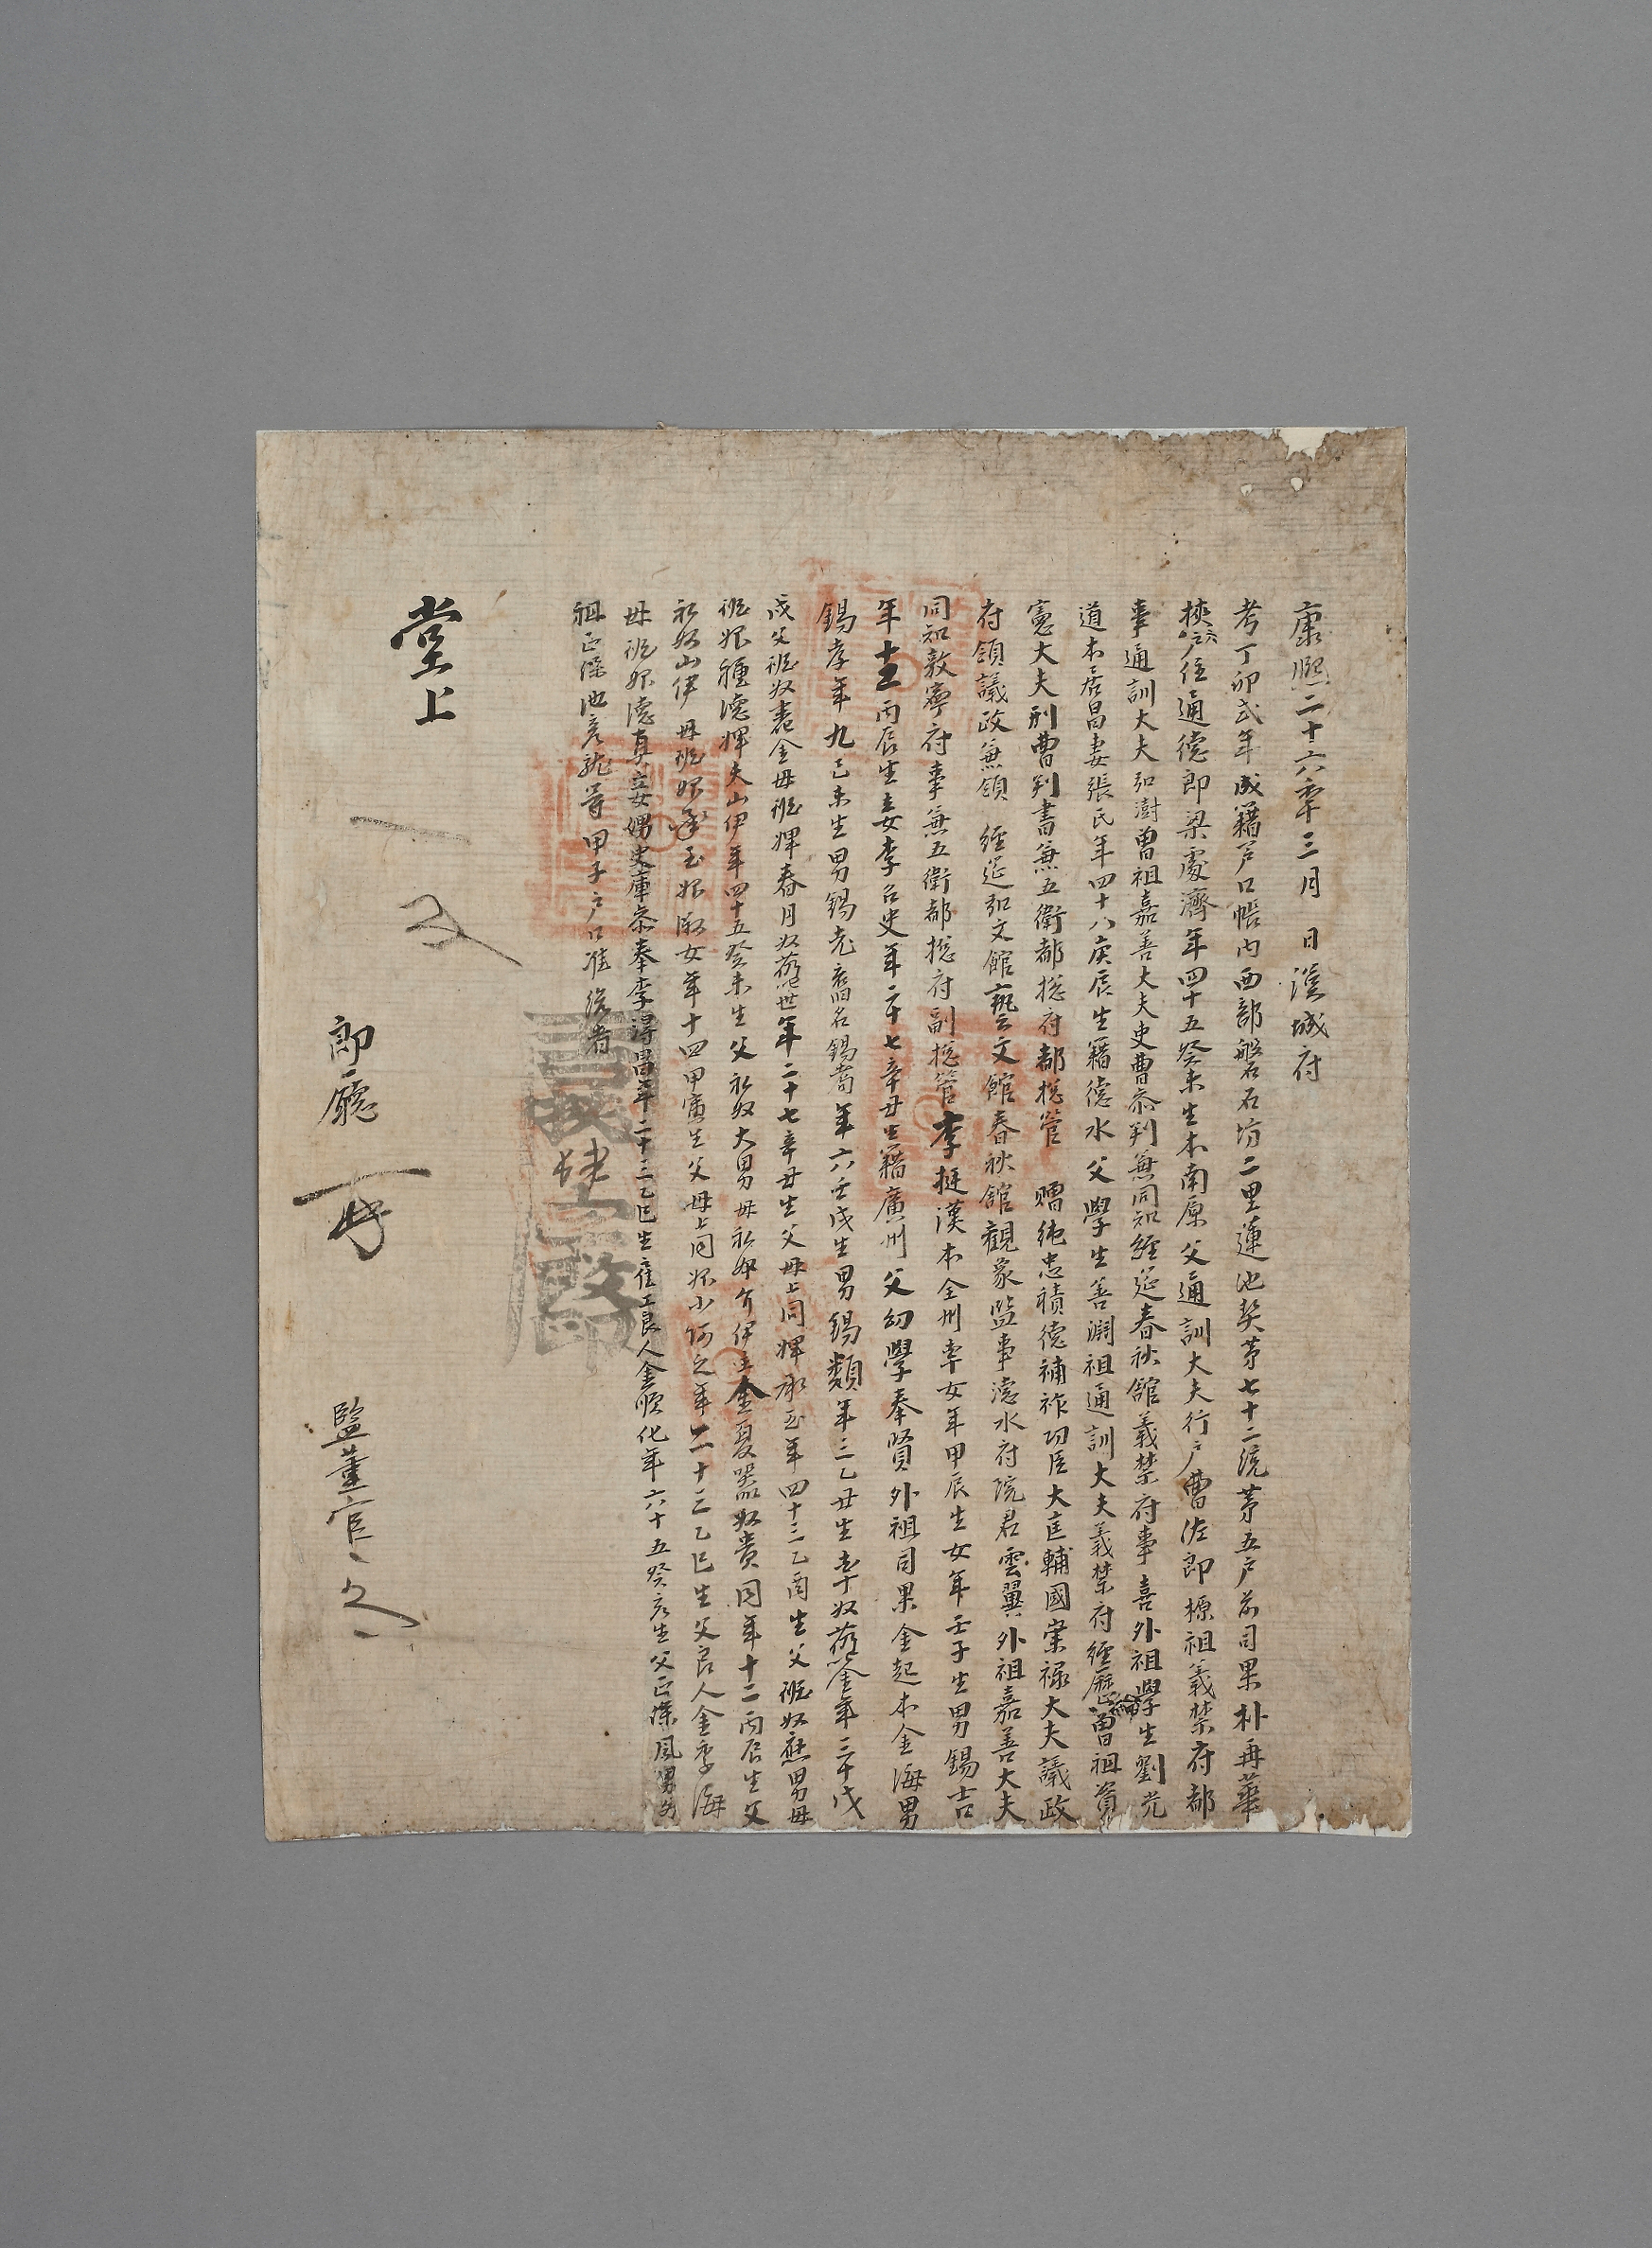 康熙二十六年三月 日漢城府
考丁卯式年成籍戶口帳內西部盤石坊二里蓮池契苐七十二統苐五戶前司果朴再華
挾戶住通德郎梁處濟年四十五癸未生本南原父通訓大夫行戶曹佐郎榞祖義禁府都
事通訓大夫弘澍曾祖嘉善大夫吏曹叅判兼同知經筵春秋館義禁府事 喜外祖學生劉光
道本居昌妻張氏年四十八庚辰生籍德水父學生善淵祖通訓大夫義禁府經歷綸曾祖資
憲大夫刑曹判書兼五衛都摠府都摠管 贈純忠積德補祚功臣大匡輔國崇祿大夫議政
府領議政兼領 經筵弘文館藝文館春秋館觀象監事德水府院君雲翼外祖嘉善大夫
同知敦寧府事兼五衛都摠府副摠管李挺漢本全州率女年甲辰生女年壬子生男錫吉
年十二丙辰生妾李召史年二十七辛丑生籍廣州父幼學奉賢外祖司果金起本金海男
錫孝年九己未生男錫老舊名錫耈年六壬戌生男錫類年三乙丑生率奴 金年三十戊
戌父班奴 金母班婢春月奴 世年二十七辛丑生父母上同婢承玉年四十三乙酉生父班奴 男母
班婢種德婢夫山伊年四十五癸未生父私奴大男母私婢介伊 奴貴同年十二丙辰生父
私奴山伊母班婢承玉婢淑女年十四甲寅生父母上同婢小 之年二十三乙巳生父良人金季海
母班婢德眞妾 史庫叅奉李得昌年二十三乙巳生雇工良人金順化年六十五癸亥生父正兵風男
祖正兵池彦龍等甲子戶口准給者
書 肆 印
堂上
郎廳
監董官